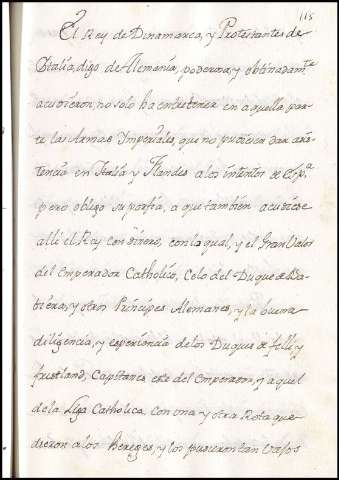 115
El Rey de Dinamarca, y Protestantes de
Ytalia, digo de Alemania, poderosa, y obstinadam.te
acudieron, no solo ha entretener en aquella par-
te las Armas Imperiales, que no pudiesen dar asis-
tencia en Italia y Flandes a los intentos de Esp.a
pero obligo su porfia, a que tambien acudiese
alli el Rey con dinero, con la qual, y el Gran Valor
del Emperador Catholico, Celo del Duque de Ba-
biera, y otros Principes Alemanes, y la buena
diligencia, y experiencia de los Duques de Tilli y
Fristland, Capitanes este del Emperador, y aquel
de la Liga Catholica con una y otra Rota que
dieron a los Hereges, y los pusieron tan vajos